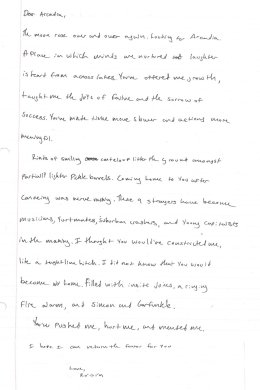 Dear Arcadia,
The moon rose over and over again. Looking for Arcadia
A Place in which minds are nurtured and laughter
is heard from across lakes. You've offered me growth,
taught me the joys of failure and the sorrow of
success. You've made time move slower and actions more
meaningful.
Rinds of smiling cantaloupe litter the ground amongst
Partially lighter Pickle barrels. Coming home to you after
canoeing was never. These 9 strangers have become
musicians, Furtunates, Suburban crashers, and Young Capitalists
in the making. I thought you would've constricted me,
like a tautline hitch. I did not know that you would
become my home. Filled with inside jokes, a ringing
Fire, warm, and Simon and Garfunkle.
You've Pushed me, hurt me, and mented me.
I hope I can return the favor for you
Love,